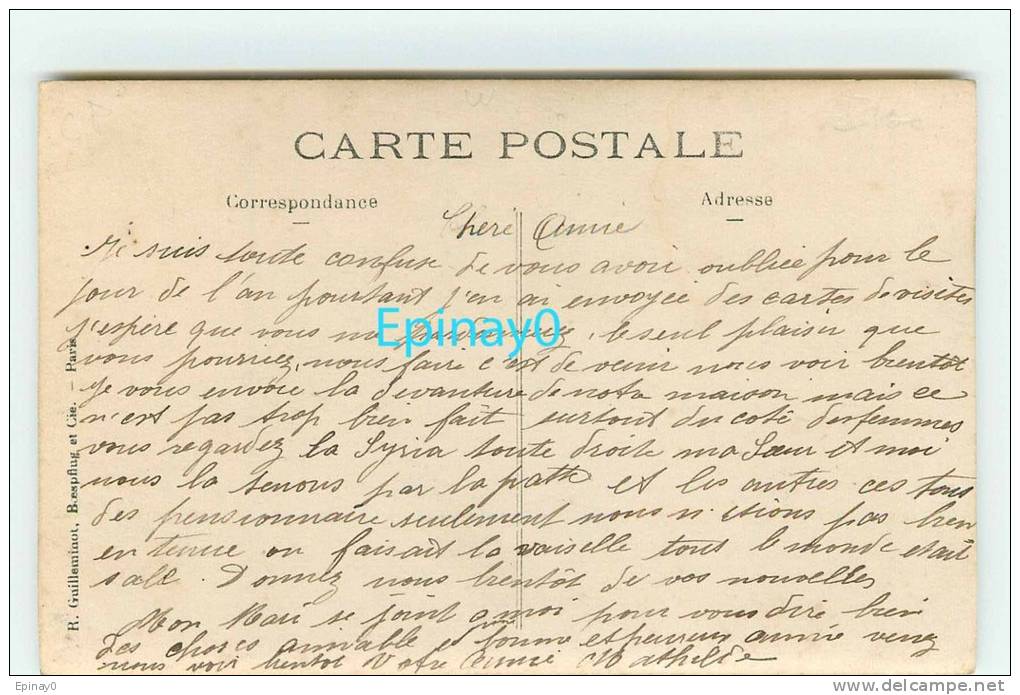 CARTE POSTALE
Correspondance
Adresse
Chere Amie
Je suis toute confuse de vous avoir oubliée pour le
jour de l'an pourtant j'en ai envoyée des cartes de visites
j'espère que vous me le seul plaisir que
vous pourriez nous faire c'est de venir nous voir bientôt
Je vous envoie la devanture de notre maison mais ce
n'est pas trop bien fait surtout du coté des femmes
vous regardez la Syria toute droite ma Sœur et moi
nous la tenons par la patte et les autres ces tous
des pensionnaire seulement nous n'etions pas bien
en tenue on faisait la vaiselle tout le monde etait
sale. Donnez nous bientôt de vos nouvelles
Mon Mari se joint a moi pour vous dire bien
des choses aimable et bonne et heureux année venez
nous voir bientot Votre amie Mathilde
R. Guilleminot, Bœspflug et Cie. — Paris
Epinay0
Epinay0
delcampe.net